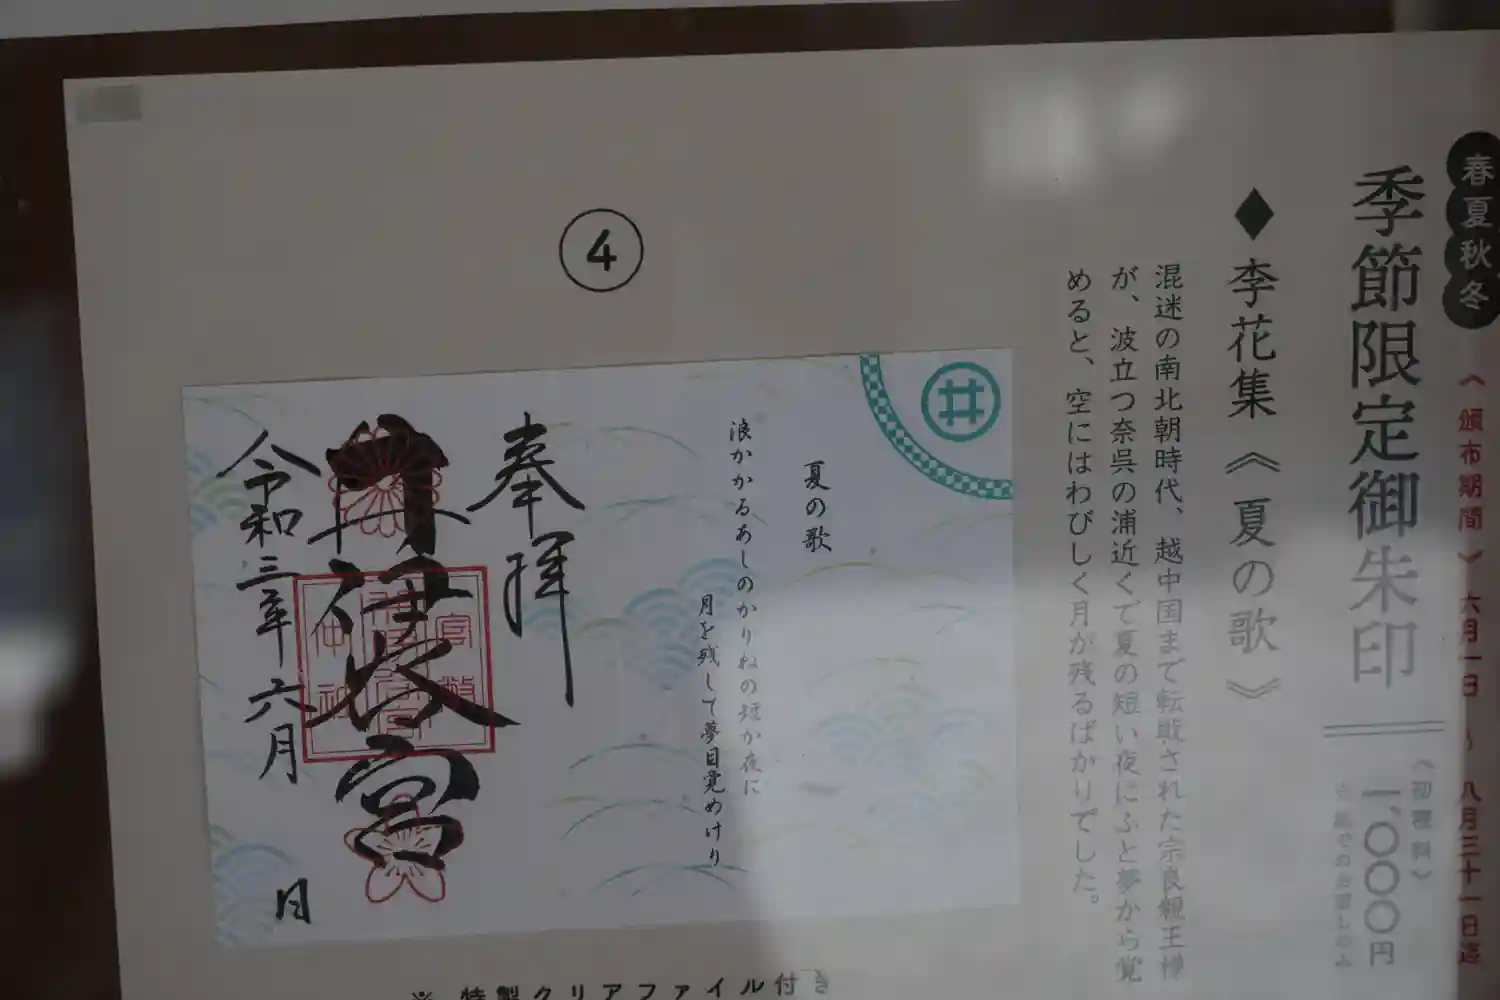 春夏秋冬
《頒布期間》六月一日〜八月三十一日迄
季節限定御朱印
《初穂料》
一、〇〇〇円
◆李花集《夏の歌》
混迷の南北朝時代、越中国まで転戦された宗良親王様
が、波立つ奈呉の浦近くで夏の短い夜にふと夢から覚
めると、空にはわびしく月が残るばかりでした。
④
井
夏の歌
浪かかるあしのかりねの短か夜に
月を残して夢目覚めけり
奉拝
井伊谷宮
令和三年六月 日
※特製クリアファイル付き